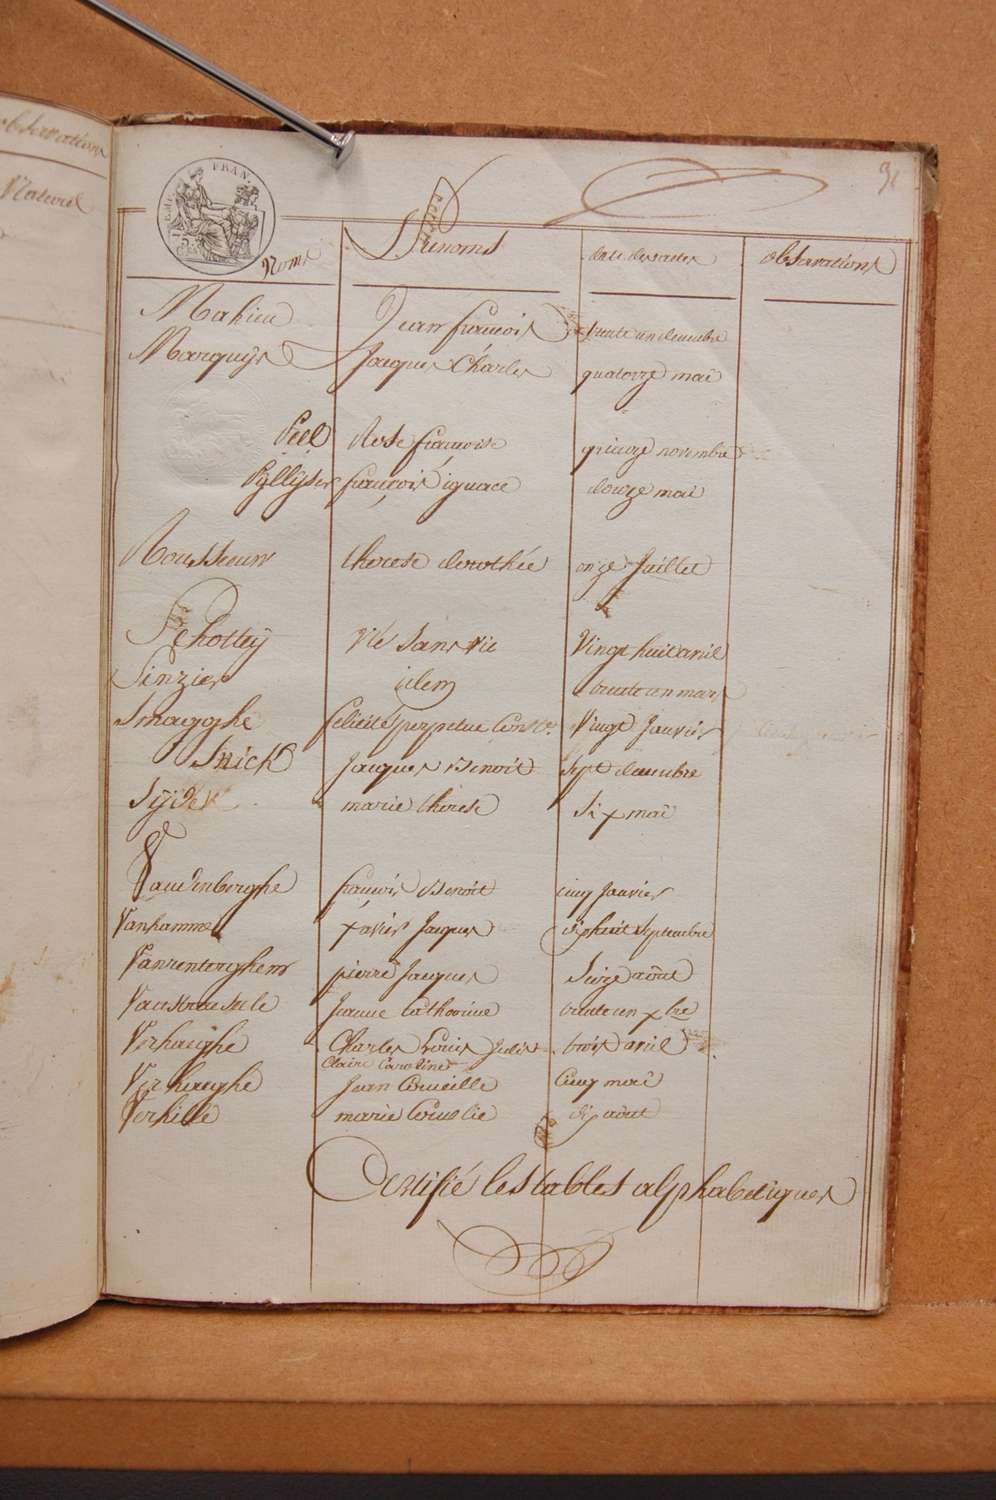 observations
Naturel
FRAN.
Noms Prenoms date des actes observations
Mahieu Jean francois trente un decembre
Marquijs Jacques Charles quatorze mai
Peel Rose françoise quinze novembre
Pyllyser françois ignace douze mai
Rousseeuw therese dorothée onze Juillet
Schotteÿ né sans vie Vingt huit avril
Sinzier idem trente un mars
Smagghe felicité perpetue Const. Vingt Janvier
Snick Jacques Benoit Sept decembre
marie therese Six mai
Vandenberghe francois Benoit cinq Janvier
Vanhamme xavier Jacques dixhuit Septembre
Vanrenterghem pierre Jacques Seize août
Vanstraesele Jeanne Catharine trente un xbre
Verhaeghe Charles Louis Julie trois avril
Claire Caroline
Verhaeghe Jean Corneille Cinq mai
Verhille marie dix aout
Certifié les tables alphabetiques